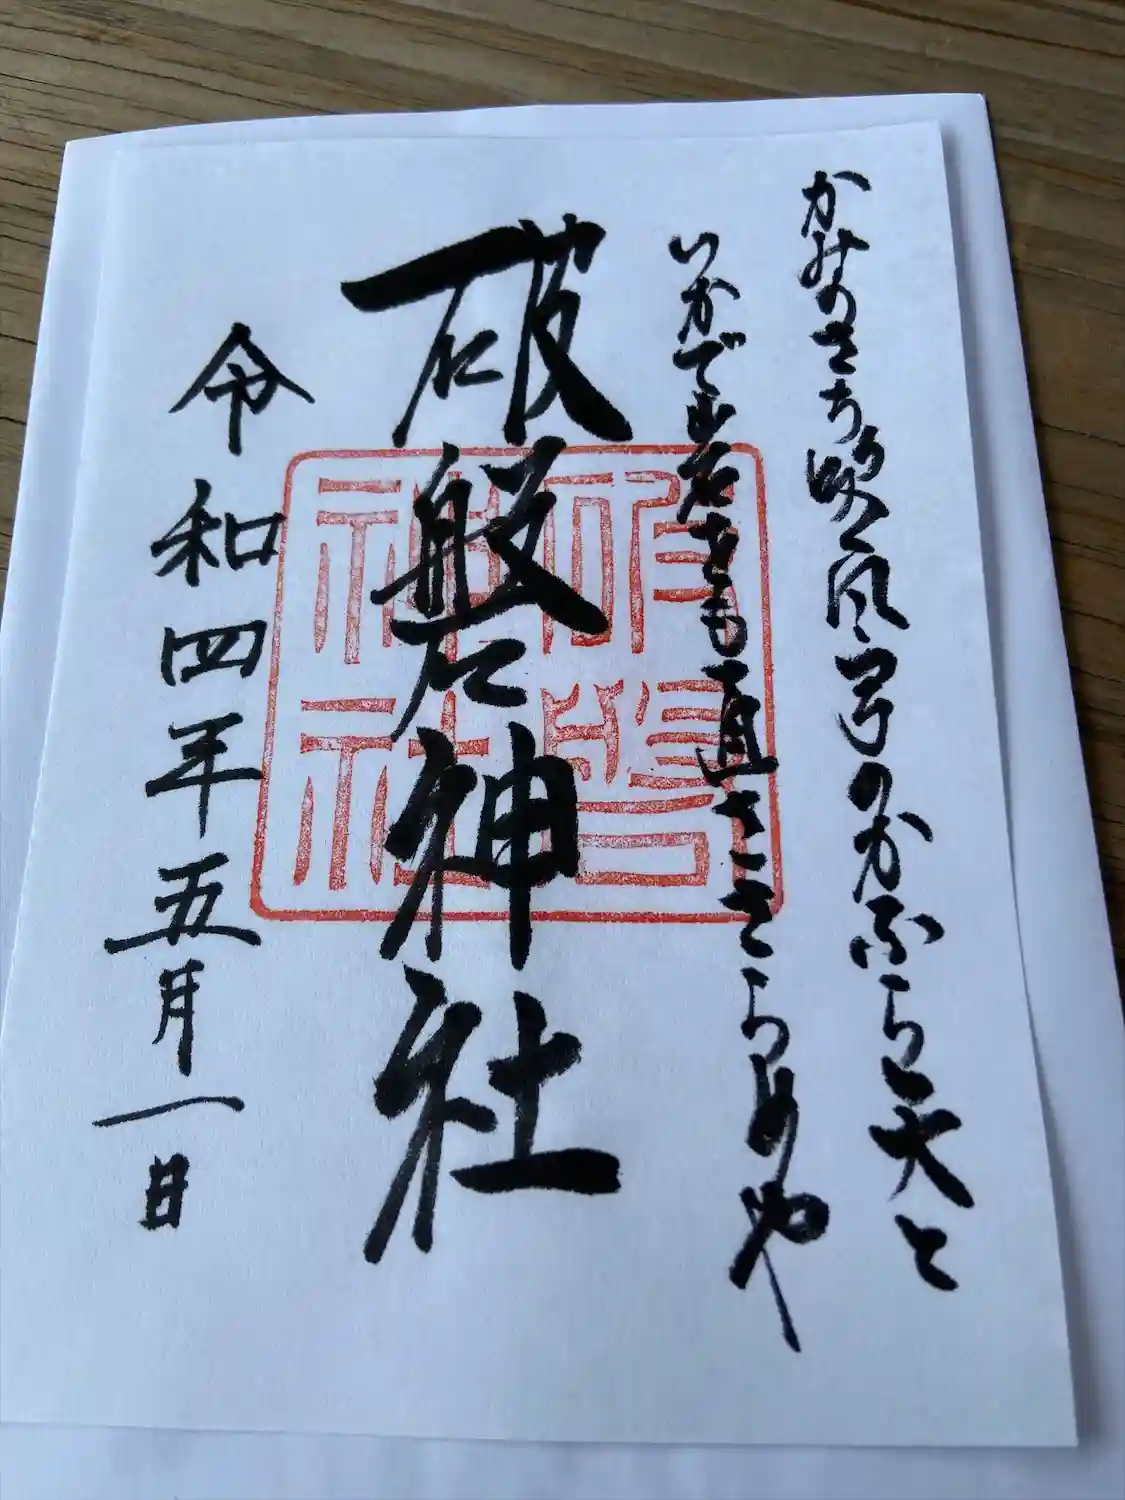 かみのさち
風
のかふら矢と
いかで岩をも通ささらめや
破磐神社
破磐
神社
令和四年五月一日